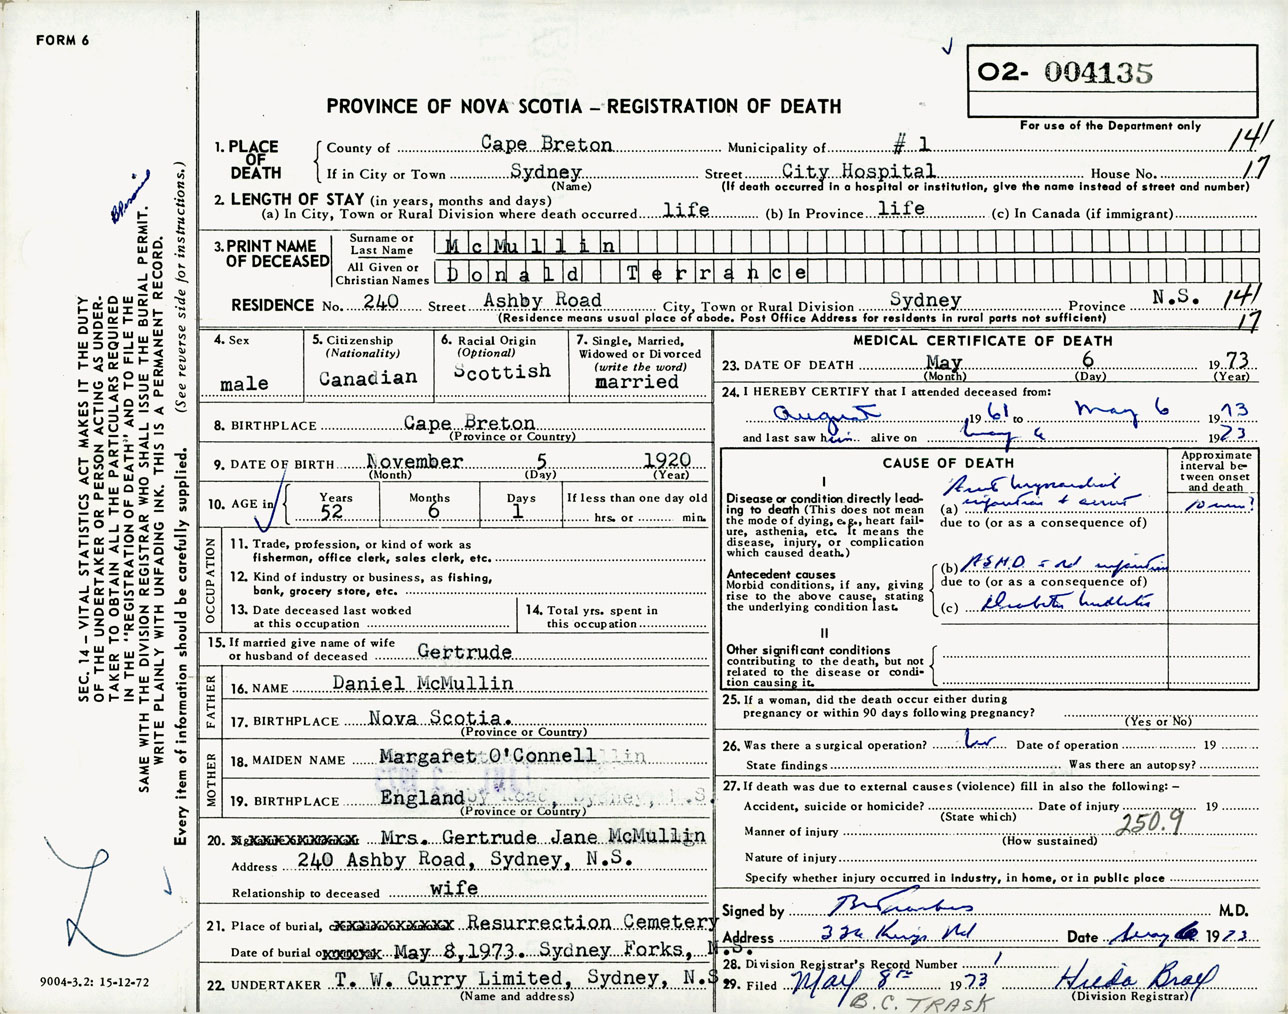 FORM 6
O2- 004135
PROVINCE OF NOVA SCOTIA – REGISTRATION OF DEATH
For use of the Department only
1. PLACE OF DEATH
County of Cape Breton Municipality of # 1 141
If in City or Town Sydney Street City Hospital House No. 17
(Name) (If death occurred in a hospital or institution, give the name instead of street and number)
2. LENGTH OF STAY (in years, months and days)
(a) In City, Town or Rural Division where death occurred life (b) In Province life (c) In Canada (if immigrant)
3. PRINT NAME OF DECEASED
Surname or Last Name McMullin
All Given or Christian Names Donald Terrance
RESIDENCE No. 240 Street Ashby Road City, Town or Rural Division Sydney Province N.S. 141
(Residence means usual place of abode. Post Office Address for residents in rural parts not sufficient) 17
4. Sex
male
5. Citizenship
(Nationality)
Canadian
6. Racial Origin
(Optional)
Scottish
7. Single, Married,
Widowed or Divorced
(write the word)
married
8. BIRTHPLACE Cape Breton
(Province or Country)
9. DATE OF BIRTH November 5 1920
(Month) (Day) (Year)
10. AGE in
Years Months Days If less than one day old
52 6 1 hrs. or min.
OCCUPATION
11. Trade, profession, or kind of work as
fisherman, office clerk, sales clerk, etc.
12. Kind of industry or business, as fishing,
bank, grocery store, etc.
13. Date deceased last worked
at this occupation
14. Total yrs. spent in
this occupation
15. If married give name of wife
or husband of deceased Gertrude
FATHER
16. NAME Daniel McMullin
17. BIRTHPLACE Nova Scotia.
(Province or Country)
MOTHER
18. MAIDEN NAME Margaret O'Connell
19. BIRTHPLACE England
(Province or Country)
20. Mrs. Gertrude Jane McMullin
Address 240 Ashby Road, Sydney, N.S.
Relationship to deceased wife
21. Place of burial, Resurrection Cemetery
Date of burial o May 8,1973. Sydney Forks, N.S.
22. UNDERTAKER T. W. Curry Limited, Sydney, N.S
(Name and address)
MEDICAL CERTIFICATE OF DEATH
23. DATE OF DEATH May 6 1973
(Month) (Day) (Year)
24. I HEREBY CERTIFY that I attended deceased from:
August 1961 to May 6 1973
and last saw him alive on May 6 1973
CAUSE OF DEATH
Approximate
interval be-
tween onset
and death
I
Disease or condition directly lead-
ing to death (This does not mean
the mode of dying, e.g., heart fail-
ure, asthenia, etc. It means the
disease, injury, or complication
which caused death.)
Acute myocardial
(a) infarction & arrest 10 min?
due to (or as a consequence of)
Antecedent causes
Morbid conditions, if any, giving
rise to the above cause, stating
the underlying condition last.
(b) ASHD infarction
due to (or as a consequence of)
(c) Diabetes Mellitus
II
Other significant conditions
contributing to the death, but not
related to the disease or condi-
tion causing it.
25. If a woman, did the death occur either during
pregnancy or within 90 days following pregnancy?
(Yes or No)
26. Was there a surgical operation? Date of operation 19
State findings Was there an autopsy?
27. If death was due to external causes (violence) fill in also the following: –
Accident, suicide or homicide? Date of injury 19
(State which)
Manner of injury 250.9
(How sustained)
Nature of injury
Specify whether injury occurred in industry, in home, or in public place
Signed by M.D.
Address Kings Rd Date May 6 1973
28. Division Registrar's Record Number
29. Filed May 8th 1973 Hilda
(Division Registrar)
B.C. TRASK
SEC. 14 – VITAL STATISTICS ACT MAKES IT THE DUTY
OF THE UNDERTAKER OR PERSON ACTING AS UNDER-
TAKER TO OBTAIN ALL THE PARTICULARS REQUIRED
IN THE "REGISTRATION OF DEATH" AND TO FILE THE
SAME WITH THE DIVISION REGISTRAR WHO SHALL ISSUE THE BURIAL PERMIT.
WRITE PLAINLY WITH UNFADING INK. THIS IS A PERMANENT RECORD.
Every item of information should be carefully supplied. (See reverse side for instructions.)
9004-3.2: 15-12-72